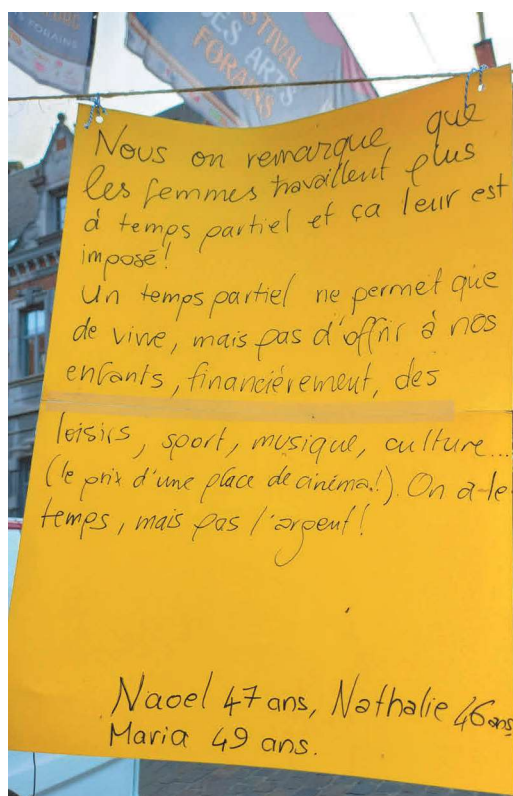 FORAINS
FESTIVAL
DES ARTS
FORAINS
Nous on remarque que
les femmes travaillent plus
à temps partiel et ça leur est
imposé!
Un temps partiel ne permet que
de vivre, mais pas d'offrir à nos
enfants, financièrement, des
loisirs, sport, musique, culture...
(le prix d'une place de cinéma!). On a le
temps, mais pas l'argent!
Naoel 47 ans, Nathalie 46 ans
Maria 49 ans.